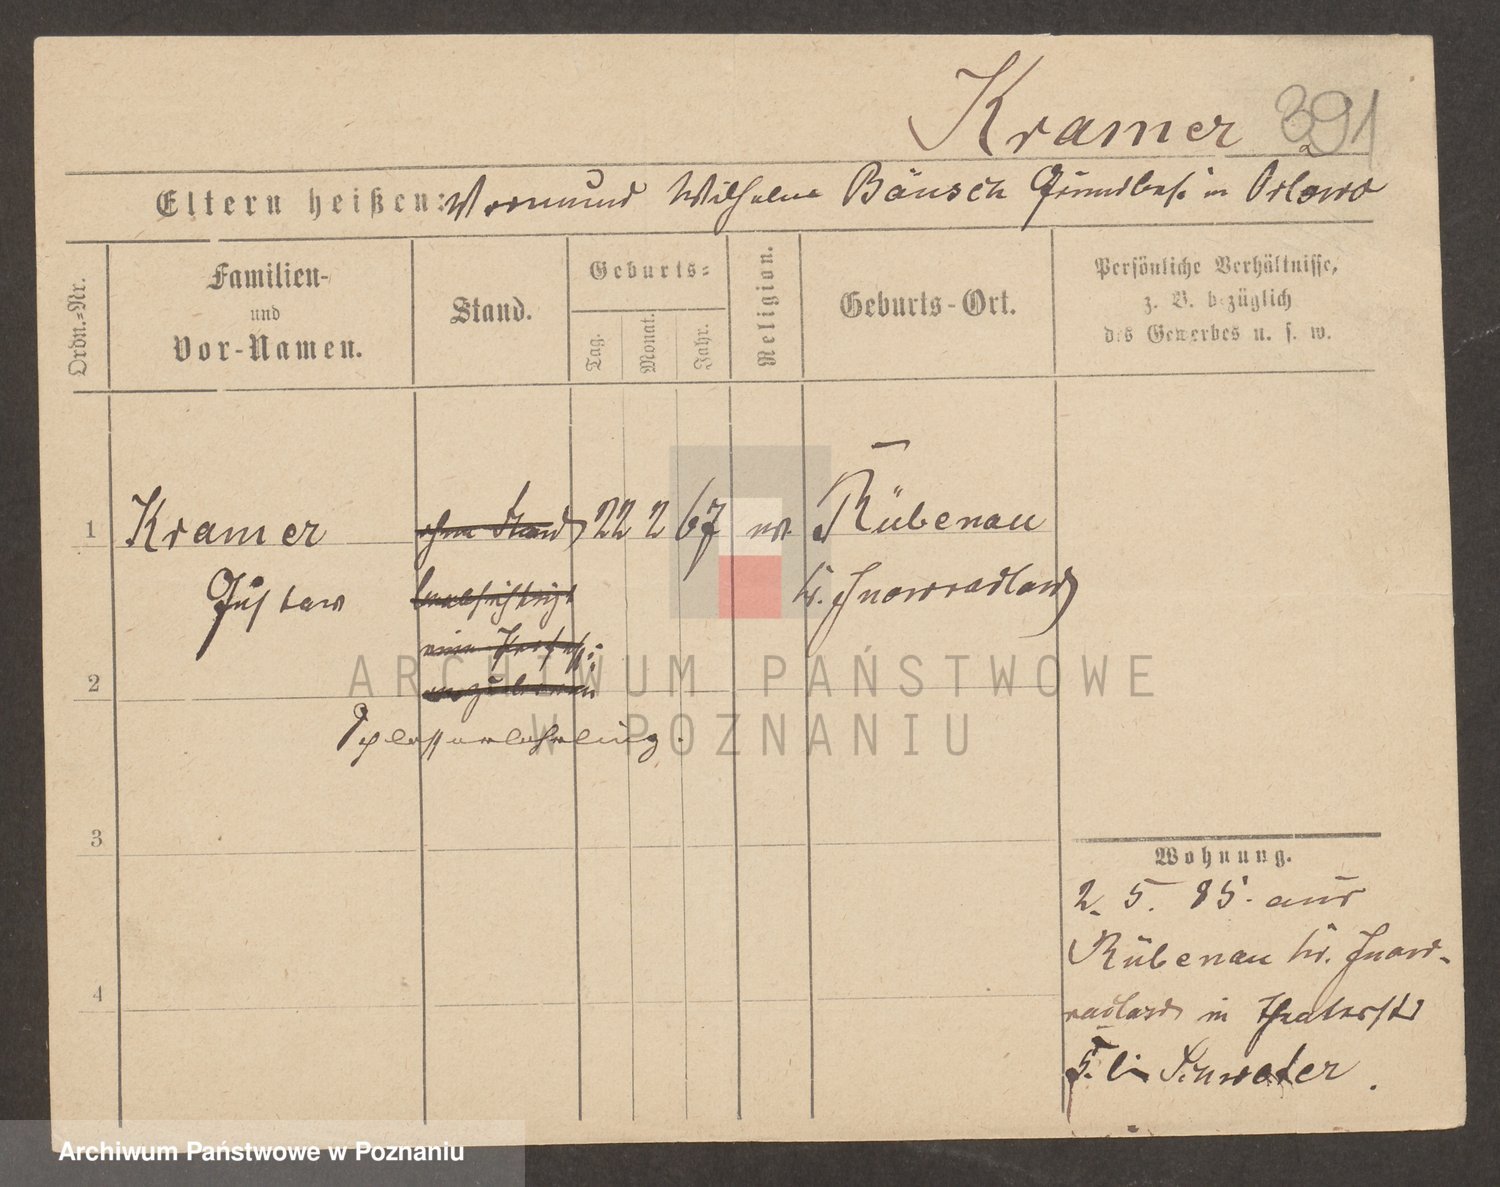 Kramer 391
Eltern heißen: Vormund Wilhelm Bänsch Grundbes. in Orlowo
Ordn.-Nr.
Familien-
und
Vor-Namen.
Stand.
Geburts-
Tag.
Monat.
Jahr.
Religion.
Geburts-Ort.
Persönliche Verhältnisse,
z. B. bezüglich
des Gewerbes u. s. w.
1 Kramer ohne Stand 22 2 67 ev. Rübenau
Gustav beabsichtigt Kr. Inowraclaw
eine
2
Schlosserlehrling.
3
4
Wohnung.
2. 5. 85. aus
Rübenau Kr. Inow-
raclaw in Theaterstr
5. bei
ARCHIWUM PAŃSTWOWE
W POZNANIU
Archiwum Państwowe w Poznaniu